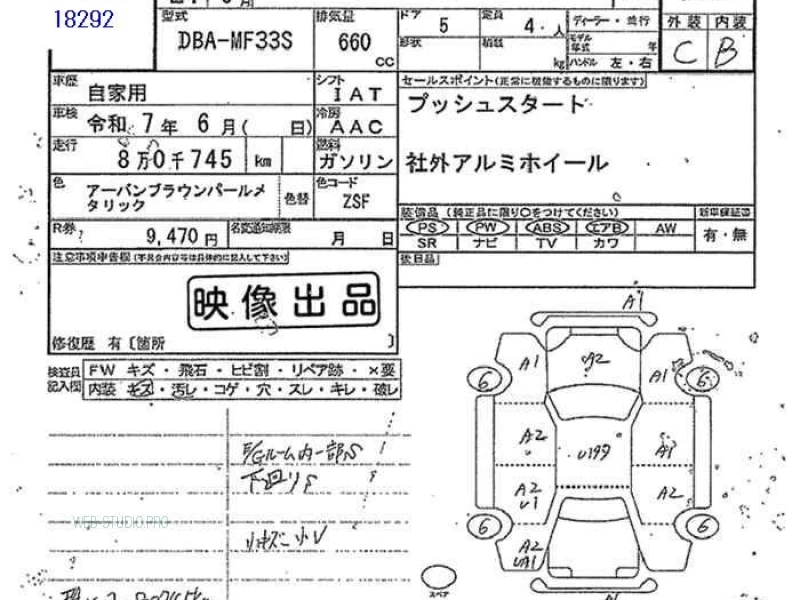 18292
型式 DBA-MF33S
排気量 660 CC
ドア 5
定員 4 人
形状
積載 kg
ディーラー・並行
モデル年式 年
ハンドル 左・右
外装 内装
C B
車歴 自家用
シフト IAT
車検 令和 7年 6月( 日)
冷房 AAC
走行 8万0千745 km
燃料 ガソリン
色 アーバンブラウンパールメタリック
色替
色コード ZSF
R券 9,470円
名変通知期限 月 日
セールスポイント(正常に機能するものに限ります)
プッシュスタート
社外アルミホイール
装備品(純正品に限り○をつけてください)
新車保証書
PS PW ABS エアB AW 有・無
SR ナビ TV カワ
後日品
注意事項申告欄(不具合内容等は具体的に記入して下さい)
映像出品
修復歴 有〔箇所 〕
検査員記入欄
FW キズ・飛石・ヒビ割・リペア跡・×要
内装 キズ・汚レ・コゲ・穴・スレ・キレ・破レ
E/Gルーム内一部S
下廻りS
小キズ 小U
WEB-STUDIO.PRO
A1
A1 A2 A1
6 6
A2 U199
A2 U1 A2
6 6
A2
スペア